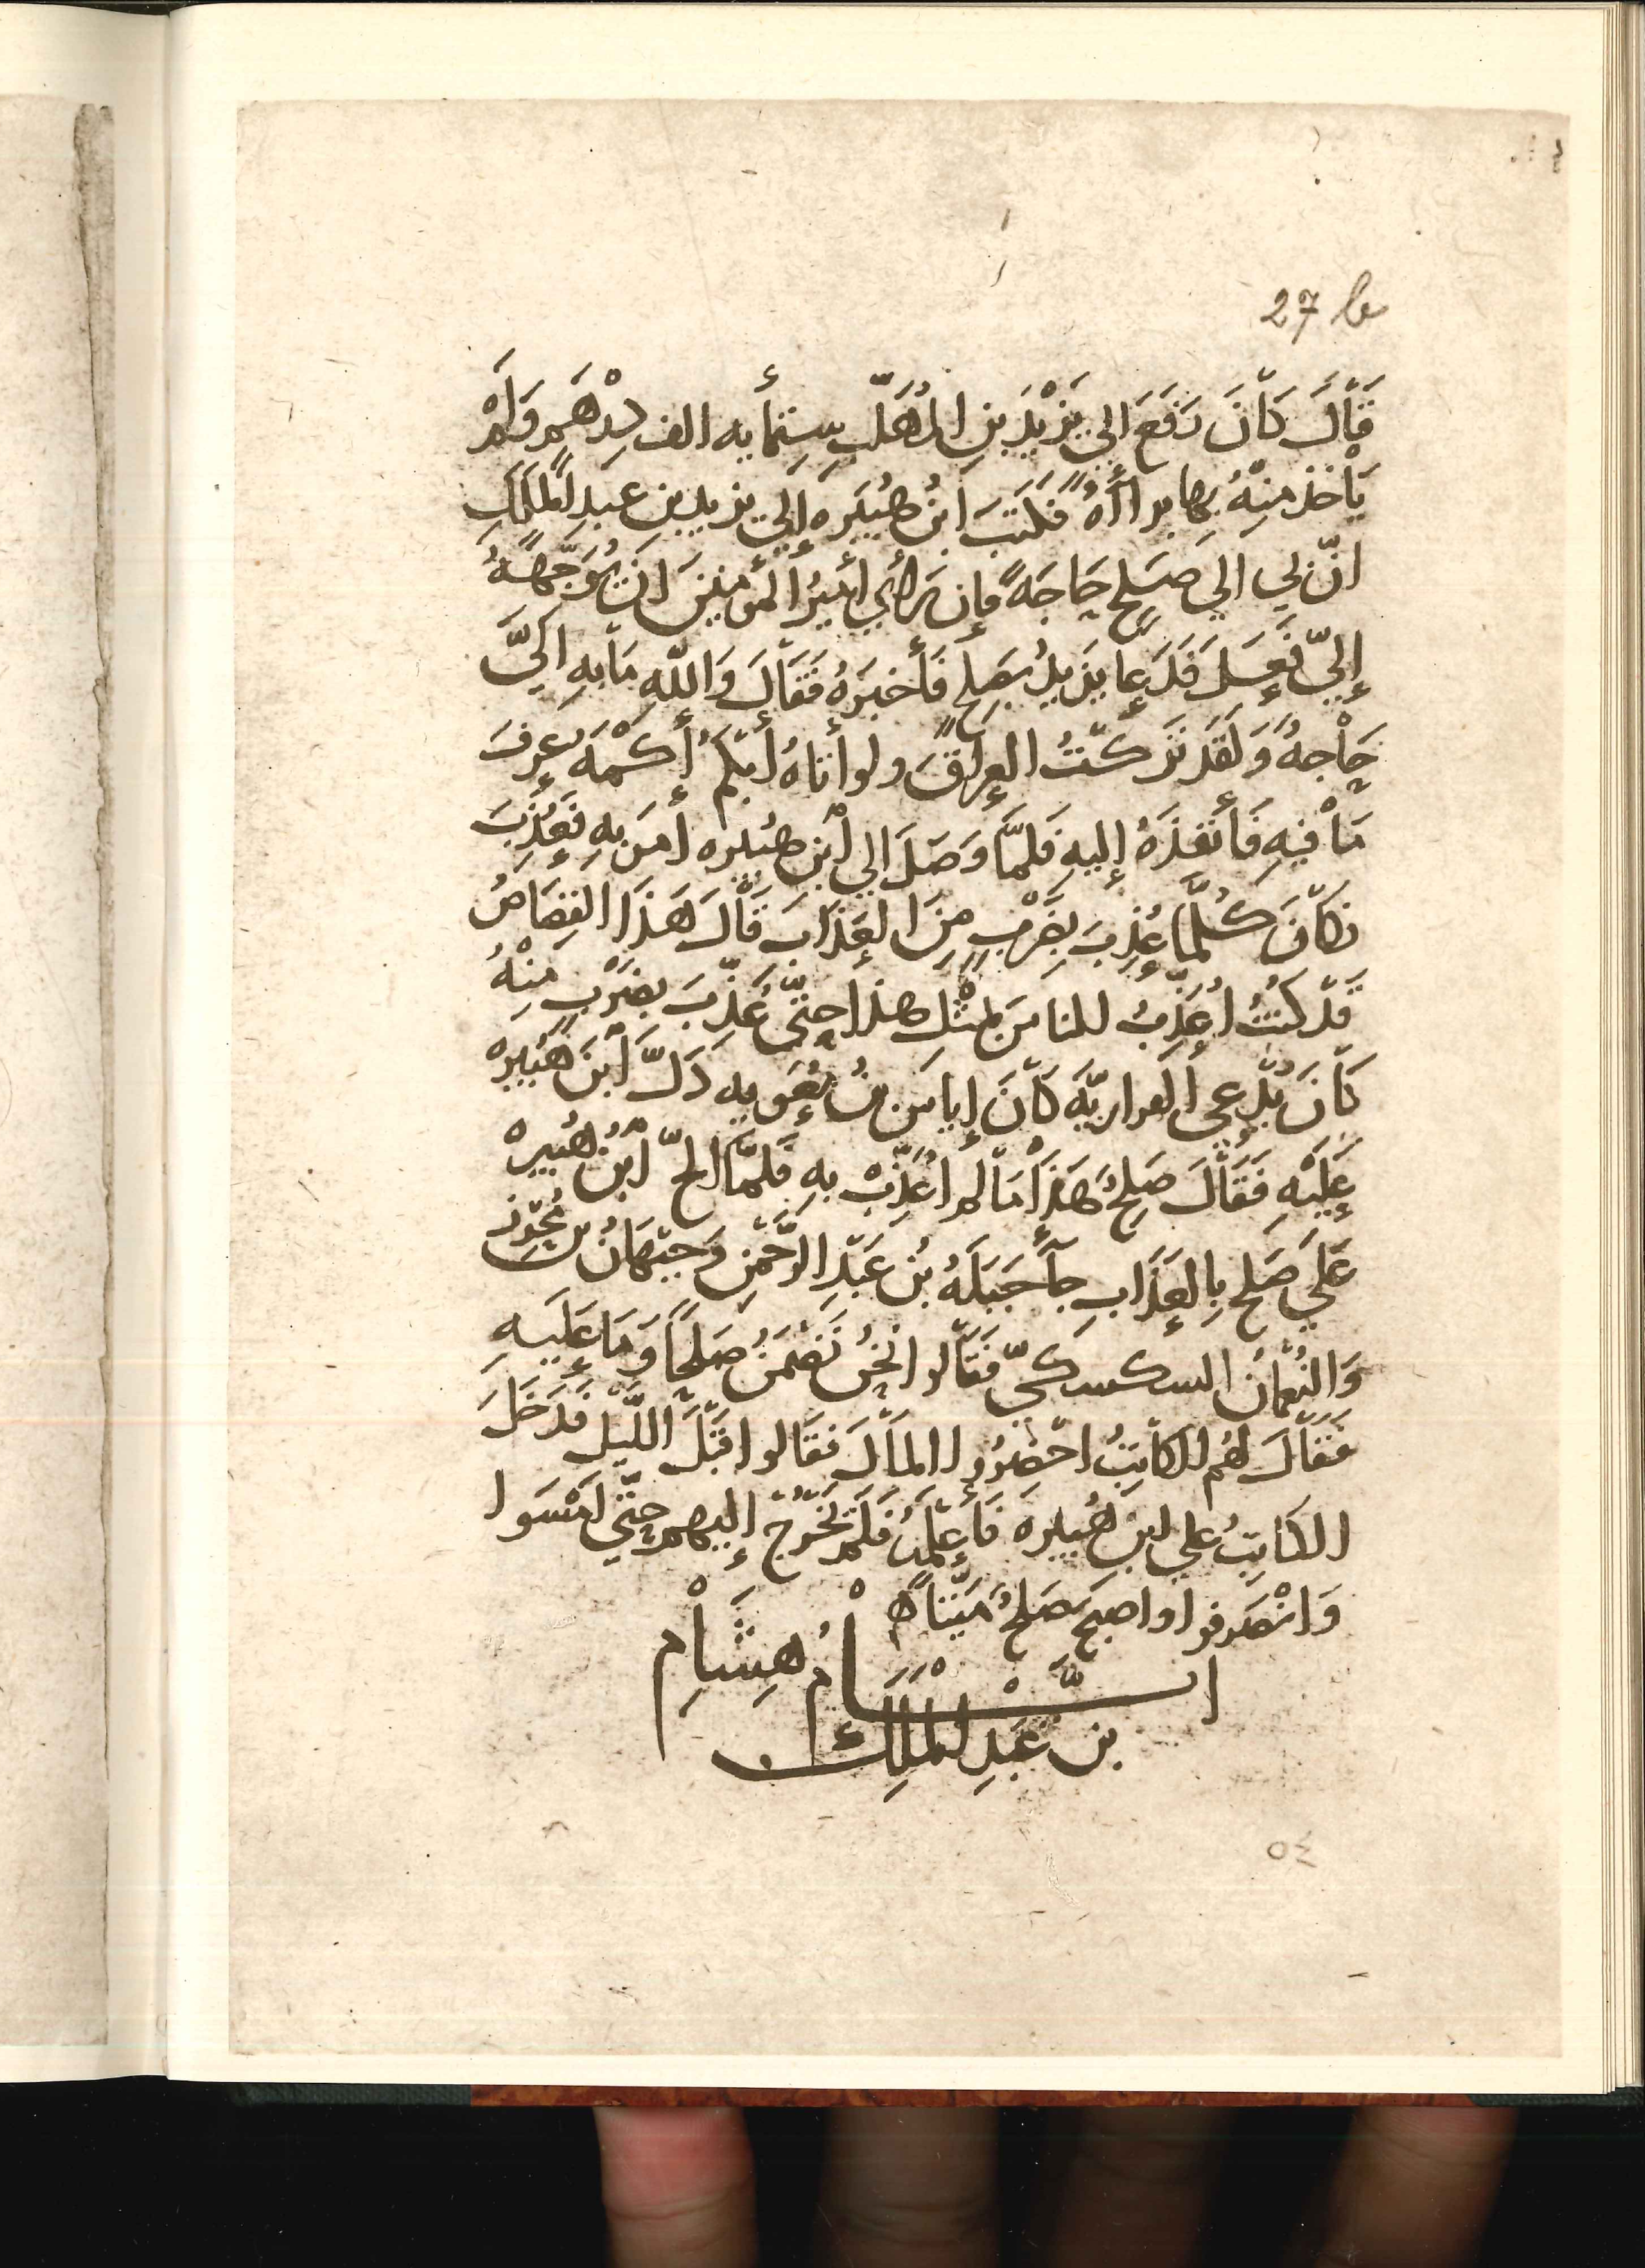 27 b
قَالَ كَانَ دَفَعَ الي يَزْيدَ بنِ المُهَلَّبِ سِتمأيه الف دِرْهَمٍ وَلَمْ
يَأخذ مِنْهُ بها براأهً فَكَتَبَ ابنُ هُبَيَره إلي يزيد بن عبدِ المَلِكِ
انّ لِي الي صَلحٍ حَاجَهً فإن رَأي أميرُ المؤمنِينَ ان يُوَجِّهَهُ
إليّ فعَلَ فَدَعا يزيدُ بصَلحٍ فَأخبَرَهُ فَقَالَ وَاللهِ مَا بهِ اليَّ
حَاجهً وَلقَد تَركتُ العِراقَ ولو أتاهُ أبكمُ أكْمَهُ عرفَ
مَا فيهِ فَأنفذَهُ إليهِ فَلمَّا وَصَلَ الي ابن هُبيره أمَر بهِ فَعُذِبَ
فكَانَ كُلّمَا عُذِبَ بِضَربٍ مِنَ العَذَابِ قَالَ هَذَا القِصَاصُ
قَد كنتُ اُعَذِّبُ الناسَ بمثْلِ هذا حتّي عُذِّبَ بضَرْبٍ مِنْهُ
كَانَ يُدعي الفراريّه كَانَ إياس بن مُعَويه دَلَّ ابنَ هُبَيره
عَلَيْهِ فَقَالَ صَلحُ هَذا مَا لم اُعَذِّبْ بهِ فَلمّا الحّ ابنُ هُبَيره
عَلَي صَلح بالعَذَابِ جأ جَبَلَهُ بنُ عَبدِ الرَّحْمَنِ وَجَبْهَانُ بن مُحرِز
وَالنُعْمانُ السكسكيّ فَقَالوا نَحنُ نَضْمَنُ صَلحًا وَمَا عَلَيهِ
فَقَالَ لهُم الكَاتِبُ احْضِرُوا المالَ فقَالوا قَبْلَ اللّيْل فَدَخَلَ
الكَاتِبُ علي ابن هُبيره فَأعلَمَهُ فَلَم يَخرُج إليهم حتّي امْسَوا
وَانْصَرفوا واصبحَ صَلحُ مَيّتًا ه
ايــــام هِشَامِ
بن عَبدِ المَلِك
٥٤